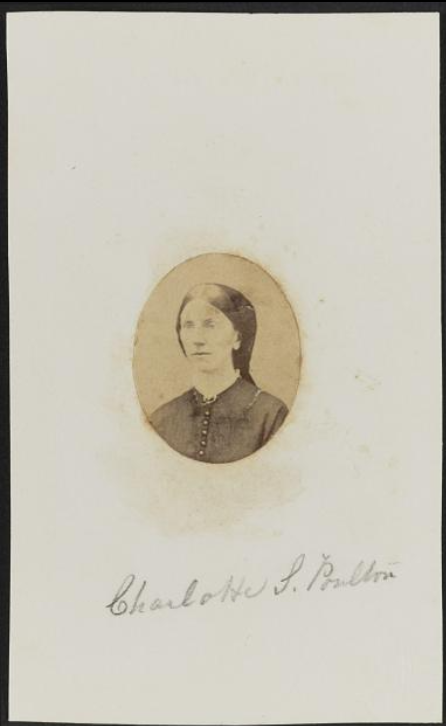 Charlotte S. Poulton